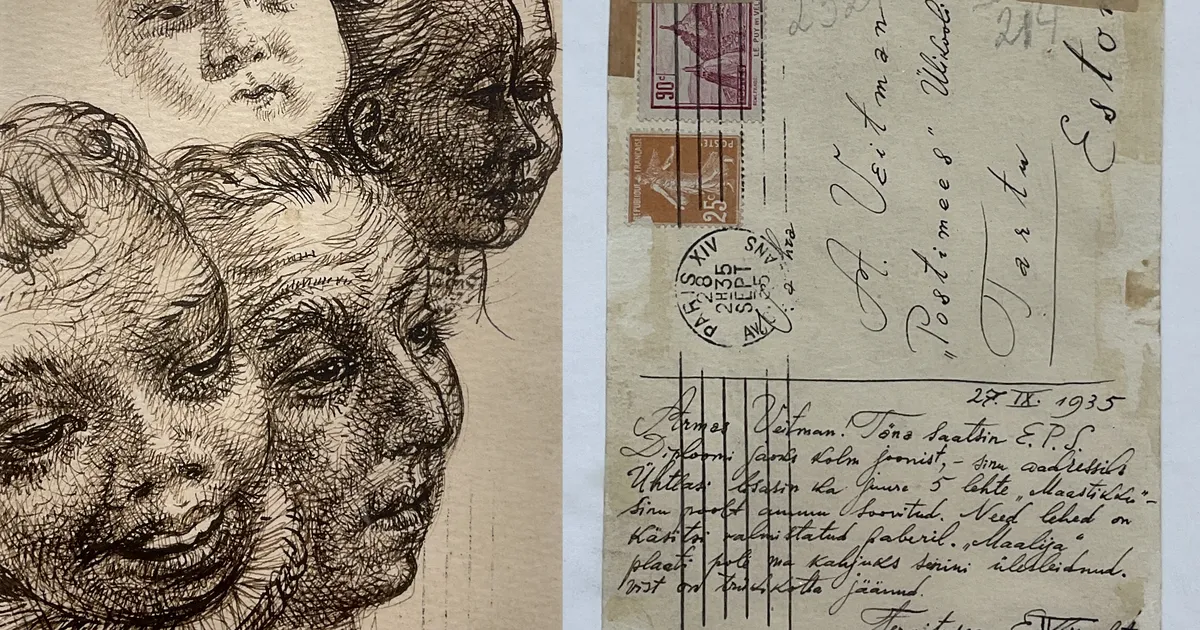 90c
LE PUY EN VELAY
25c
POSTES
REPUBLIQUE FRANÇAISE
PARIS XIV
28
2H35
SEPT
35
214
A. Veitman
„Postimees" Ülikooli
Tartu
Esto
27. IX. 1935
Armas Veitman! Täna saatsin E.P.S.
Diplomi jaoks kolm joonist, – sinu aadressile
Ühtlasi lisasin ka juure 5 lehte „Maastikku" –
sinu poolt ammu soovitud. Need lehed on
käsitsi valmistatud paberil. „Maalija"
plaati pole ma kahjuks senini ülesleidnud.
vist on trükikotta jäänud.